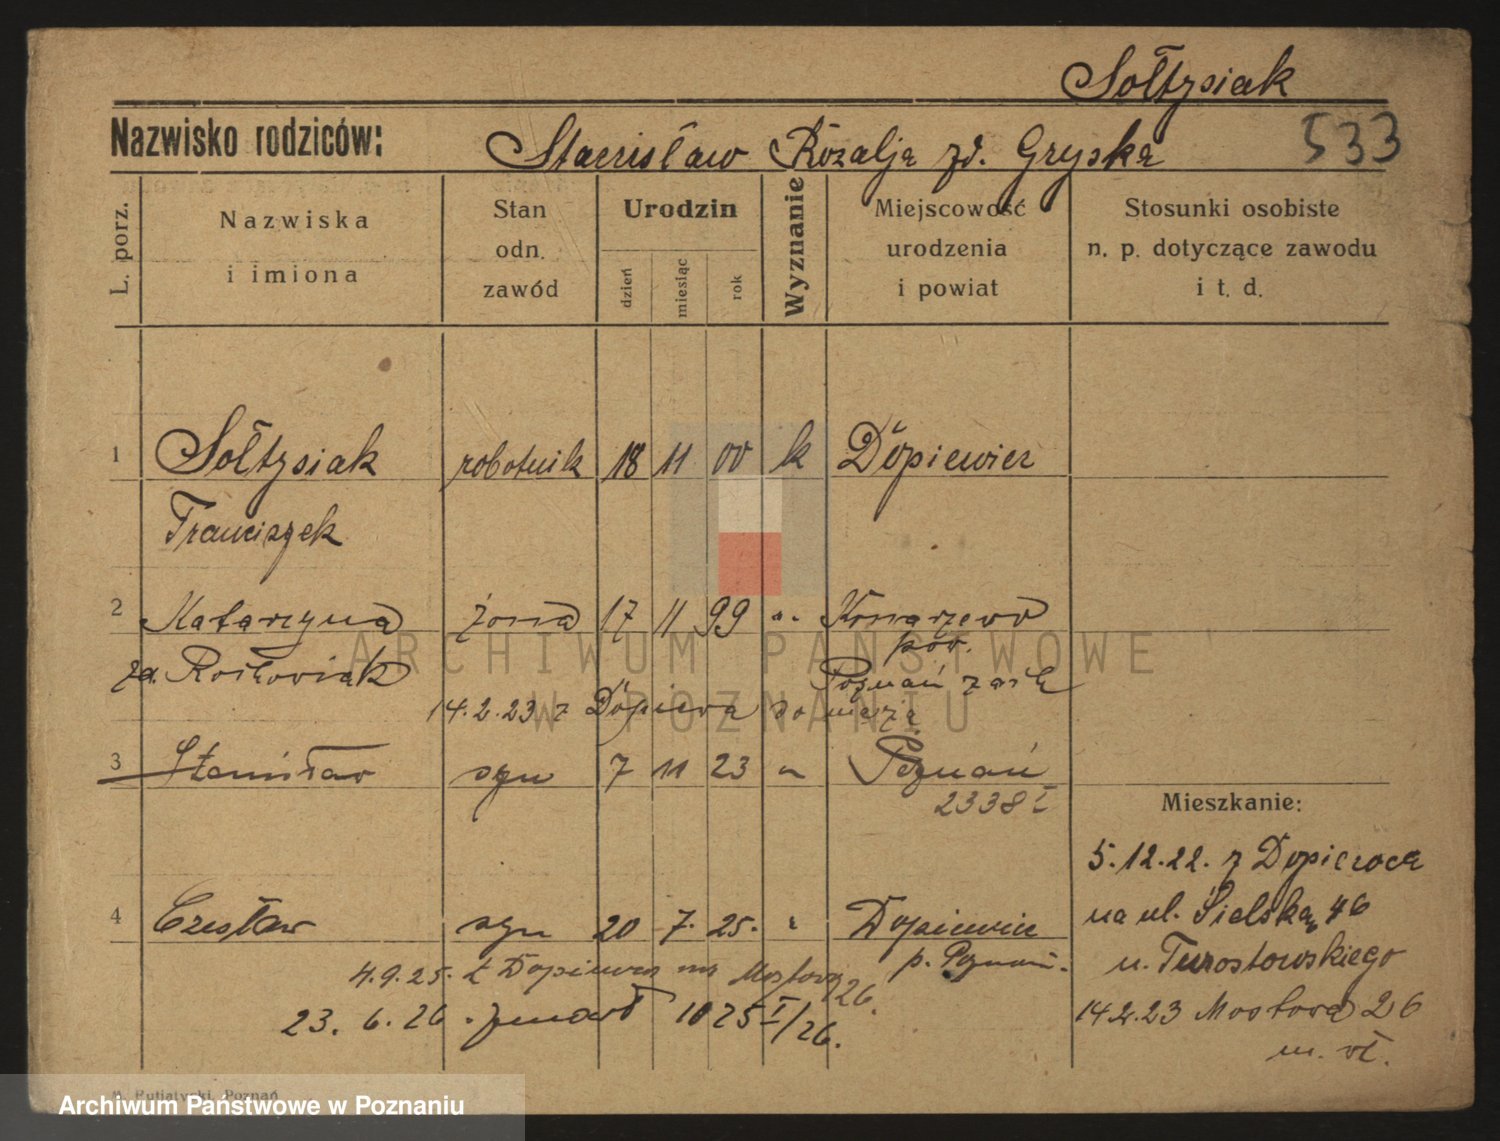 Sołtysiak
Nazwisko rodziców: Stanisław Rozalja zd. Gryska 533
L. porz.
Nazwiska i imiona
Stan odn. zawód
Urodzin
dzień miesiąc rok
Wyznanie
Miejscowość urodzenia i powiat
Stosunki osobiste n. p. dotyczące zawodu i t. d.
1 Sołtysiak robotnik 18 11 00 k Dopiewiec
Franciszek
2 Katarzyna żona 17 11 99 " Konarzewo
pow.
za. Poznań zach
14.2.23 z Dopiewa do męża
3 Stanisław syn 7 11 23 " Poznań
2338 I
Mieszkanie:
5.12.22. z Dopiewca
na ul. Sielska 46
u. Turostowskiego
14.2.23 Mostowa 26
m. wł.
4 Czesław syn 20 7. 25. " Dopiewiec
p. Poznań.
4.9.25. z Dopiewca na Mostową 26.
23. 6. 26. zmarł 1025 I/26.
Poznań
ARCHIWUM PAŃSTWOWE
W POZNANIU
Archiwum Państwowe w Poznaniu